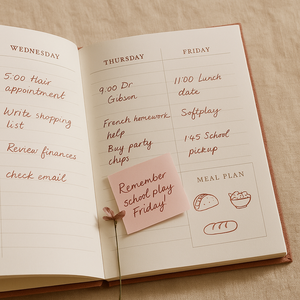 WEDNESDAY
5:00 Hair
appointment
Write shopping
list
Review finances
check email
THURSDAY
9.00 Dr
Gibson
French homework
help
Buy party
chips
Remember
school play
Friday!
FRIDAY
11:00 Lunch
date
Softplay
1:45 School
pickup
MEAL PLAN